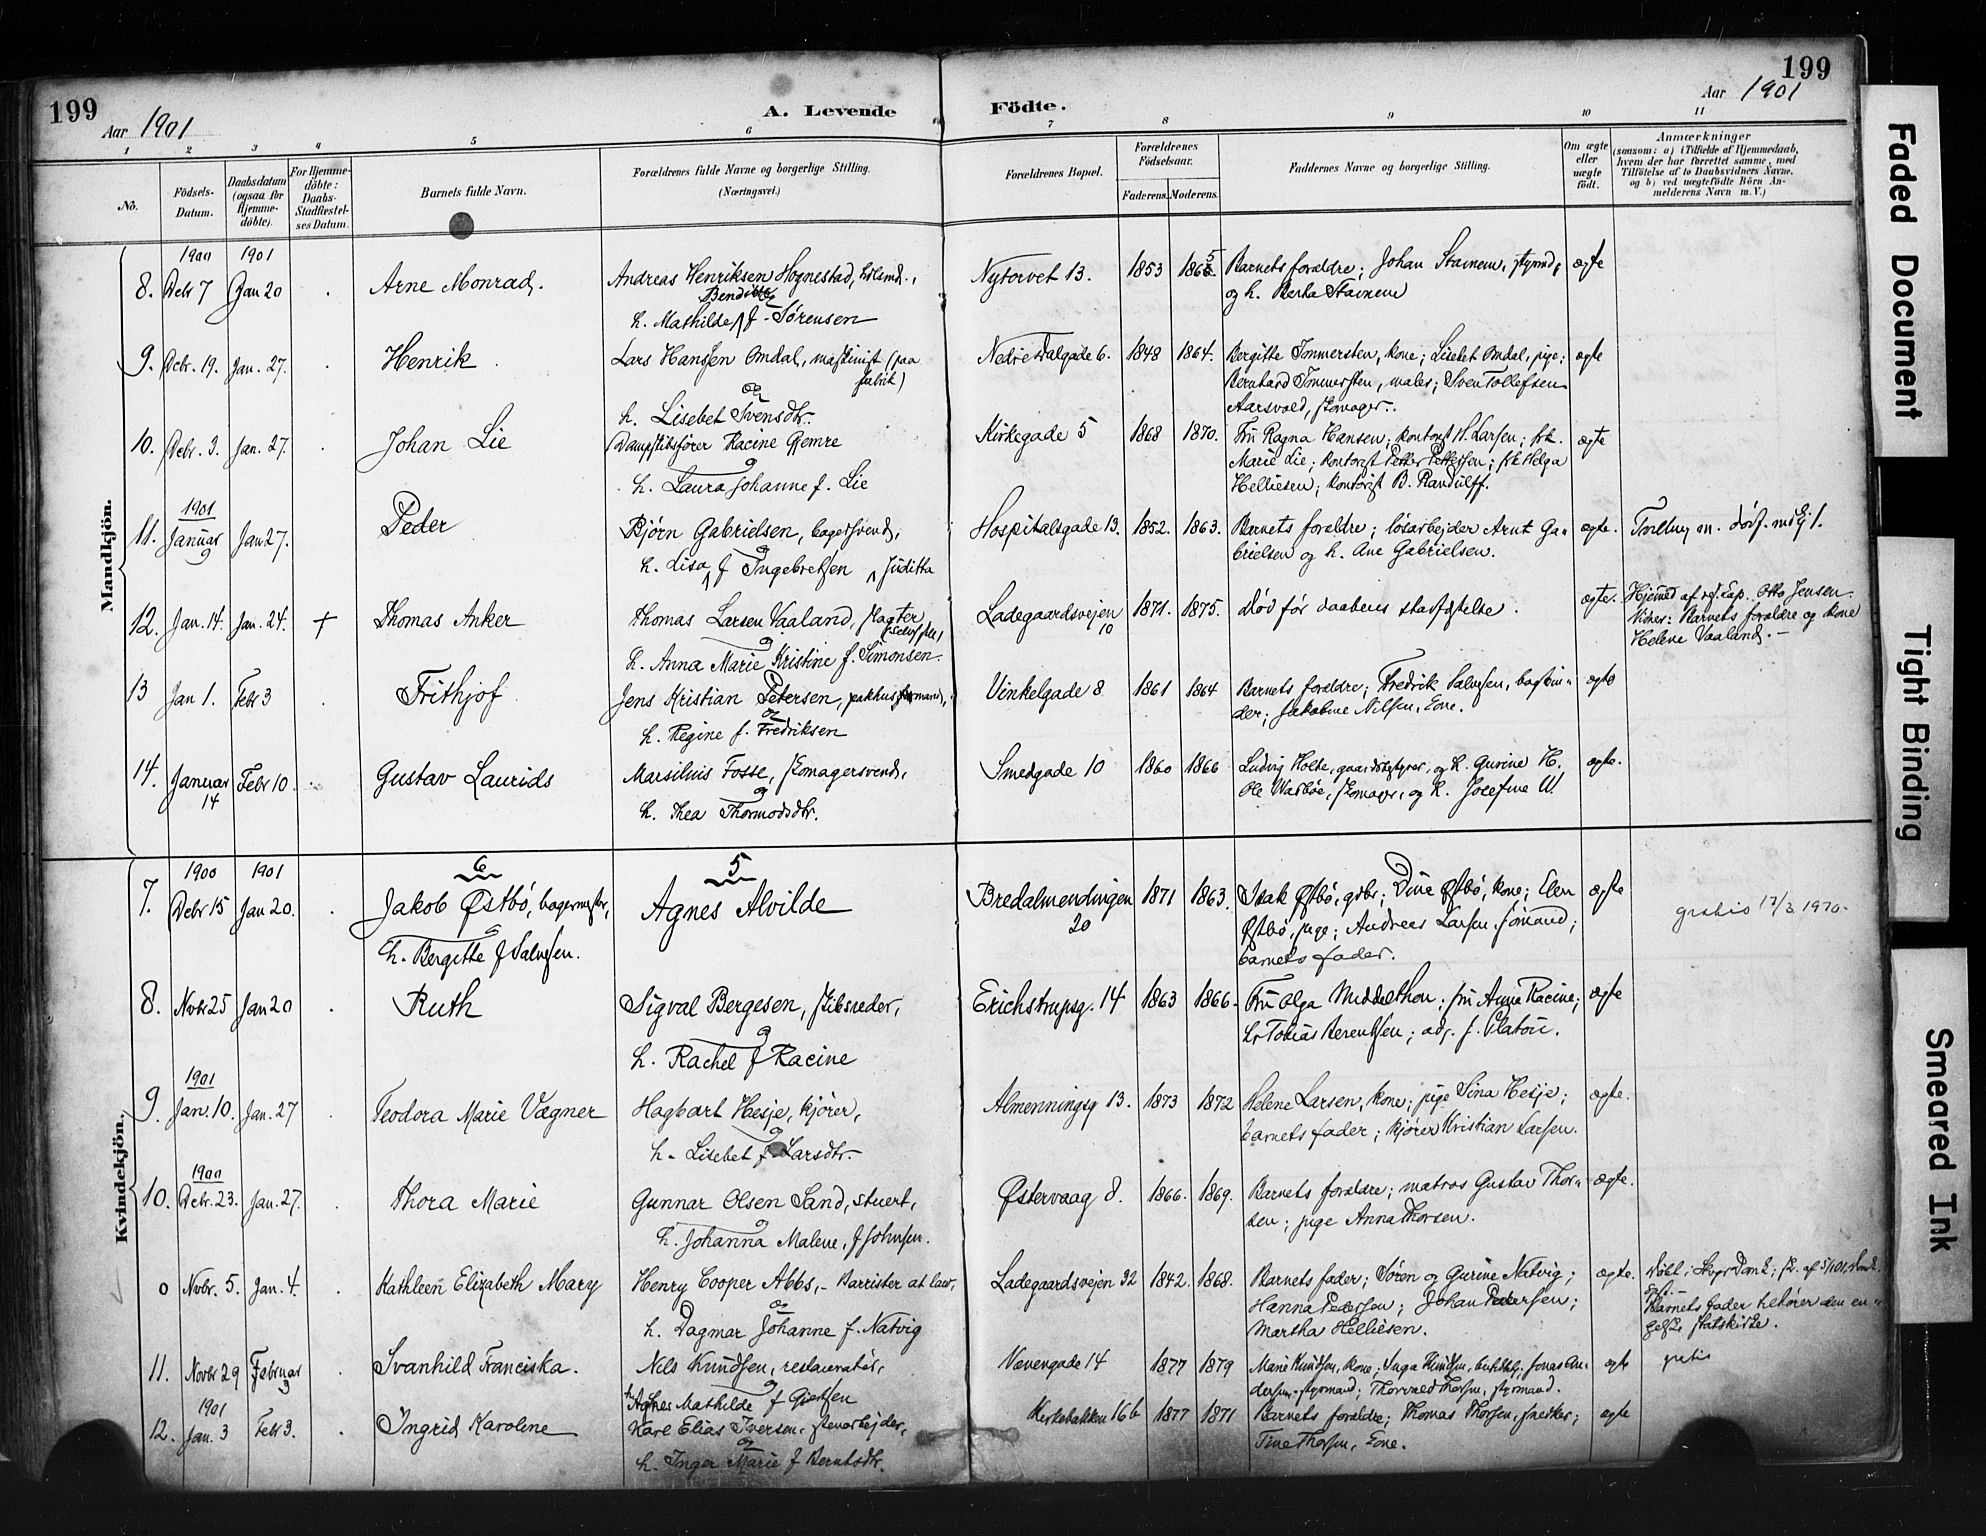 199
Aar 1901
A. Levende Födte.
199
Aar 1901
1 2 3 4 5 6 7 8 9 10 11
No.
Födsels-Datum.
Daabsdatum (ogsaa for Hjemme-döbte).
For Hjemme-döbte: Daabs-Stadfæstel-ses Datum.
Barnets fulde Navn.
Forældrenes fulde Navne og borgerlige Stilling.
(Næringsvei.)
Forældrenes Bopæl.
Forældrenes Födselsaar.
Faderens. Moderens.
Faddernes Navne og borgerlige Stilling.
Om ægte eller uægte födt.
Anmærkninger
(saasom: a) i Tilfælde af Hjemmedaab,
hvem der har forrettet samme, med
Tilföielse af to Daabsvidners Navne,
og b) ved uægtefödte Börn An-
melderens Navn m. V.)
Mandkjön.
1900 1901
8. Debr 7 Jan 20 . Arne Monrad. Andreas Henriksen Hognestad, Nytorvet 13. 1853 1865 Barnets forældre; Johan Stavnem, styrmd, ægte
h. Mathilde f. Sørensen og h. Berta Stavnem
9. Debr. 19. Jan. 27. . Henrik Lars Hansen Omdal, maskinist (paa fabrik) Nedre Dalgade 6. 1848 1864. Bergitte Immersten, kone; Lisebet Omdal, pige; ægte
og Bernhard Immersten, maler; Sven Tollefsen
h. Lisebet Svensdtr. Aarsvold, skomager.
10. Debr. 3. Jan. 27. . Johan Lie Dampskibsfører Racine Gjemre Kirkegade 5 1868 1870. Fru Ragna Hansen; kontorist N. Larsen; frk. ægte
og Marie Lie; kontorist Petter Pettersen; frk Helga
h. Laura Johanne f. Lie Helliesen; kontorist B. Randulff.
1901
11. Januar 9 Jan 27. Peder Bjørn Gabrielsen, bagersvend, Hospitalsgade 13. 1852. 1863. Barnets forældre; løsarbejder Arnt Ga- ægte.
og brielsen og h. Ane Gabrielsen.
h. Lisa f Ingebretsen Juditta
12. Jan. 14. Jan. 24. + Thomas Anker Thomas Larsen Vaaland, slagter Ladegaardsvejen 10 1871. 1875. Død før daabens stadfæstelse. ægte. Hjemmed af Otto Jensen.
og Vidner: Barnets forældre og kone
h. Anna Marie Kristine f. Simonsen. Helene Vaaland.
13 Jan 1. Febr 3 . Frithjof Jens Kristian Petersen, pakhusformand, Vinkelgade 8 1861 1864 Barnets forældre; Fredrik Salvesen, bogbin- ægte
og der; Jakobine Nilsen, Enke.
h. Regine f. Fredriksen
14. Januar 14 Febr 10. Gustav Laurids Marsilius Fosse, skomagersvend, Smedgade 10 1860 1866 Ludvig Holte, gaardsbestyrer, og h. Gurine H. ægte.
og Ole Warbøe, skomager, og h. Josefine W.
h. Thea Thormodsdtr.
Kvindekjön.
1900 1901 6 5
7. Debr 15 Jan 20. . Jakob Østbø, bagermester, Agnes Alvilde Bredalmendingen 20 1871 1863. Isak Østbø, gdbr; Dine Østbø, kone; Elen ægte gratis 17/3 1970.
og Østbø, pige; Andreas Larsen sømand;
h. Bergitte f Salvesen. barnets fader.
8. Novbr 25 Jan 20 . Ruth Sigval Bergesen, skibsreder, Erichstrupsg. 14 1863 1866. Fru Olga Middelthon; fru Anna Racine; ægte
og hr Tobias Berentsen; adj. J. Platou.
h. Rachel f Racine
1901
9. Jan. 10. Jan. 27 . Teodora Marie Vægner Hagbart Hesje, kjører, Almenningsg 13. 1873 1872 Helene Larsen, kone; pige Sina Hesje; ægte.
og barnets fader; kjører Kristian Larsen.
h. Lisebet f Larsdtr.
1900
10. Debr. 23. Jan. 27. . Thora Marie Gunnar Olsen Sand, stuert, Østervaag 8. 1866. 1869. Barnets forældre; matros Gustav Thor- ægte.
og sen; pige Anna Thorsen.
h. Johanna Malene, f Johnsen.
0 Novbr. 5. Jan. 4. . Kathleen Elizabeth Mary Henry Cooper Abbs, Barrister at law, Ladegaardsvejen 32 1842. 1868. Barnets fader; Søren og Gurine Natvig; ægte.
og Hanna Pedersen; Johan Pedersen; Barnets fader tilhører den en-
h. Dagmar Johanne f. Natvig Martha Helliesen. gelske statskirke.
11. Novbr 29 Februar 3 . Svanhild Franciska. Nils Knudsen, restauratør, Vævergade 14 1877 1879 Marie Knudsen, kone; Inga Knudsen, Jonas An- ægte gratis
og dersen, styrmand; Thorvald Thorsen, styrmand.
h. Agnes Mathilde f Gjertsen
1901
12. Jan. 3 Febr 3. . Ingrid Karoline Karl Elias Iversen, stenarbejder, Kirkebakken 16b 1877 1871 Barnets forældre; Thomas Thorsen, snedker; ægte
og Tine Thorsen, Enke.
h. Inger Marie f Berntsdtr.
Faded Document
Tight Binding
Smeared Ink